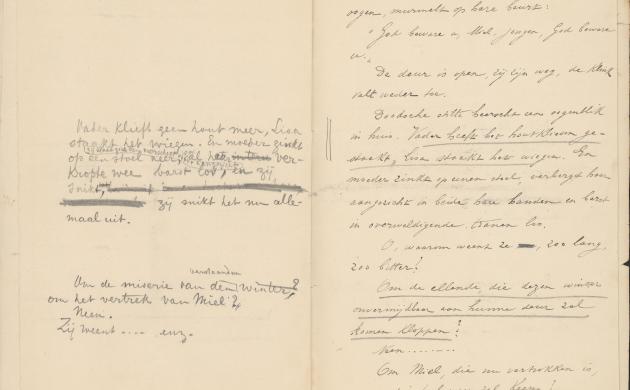 Vader klieft geen hout meer, Lisa
staakt het wiegen. En moeder zinkt
op een stoel neer, al het ver-
kropte wee barst los, en zij
snikt,
zij snikt het nu alle-
maal uit.
verstaanden
Om de miserie van den winter,?
om het vertrek van Miel?
Neen.
Zij weent .... enz.
oogen, murmelt op hare beurt:
"God beware u, Miel, jongen, God beware
u."
De deur is open, zij zijn weg, de klink
valt weder toe.
Doodsche stilte heerscht een oogenblik
in huis. Vader heeft het houtklieven ge-
staakt, Lisa staakt het wiegen. En
moeder zinkt op eenen stoel, verbergt haar
aangezicht in beide hare handen en barst
in overweldigende tranen los.
O, waarom weent ze, zoo lang,
zoo bitter?
Om de ellende, die dezen winter
onvermijdbaar aan hunne deur zal
komen kloppen?
Neen........
Om Miel, die nu vertrokken is,